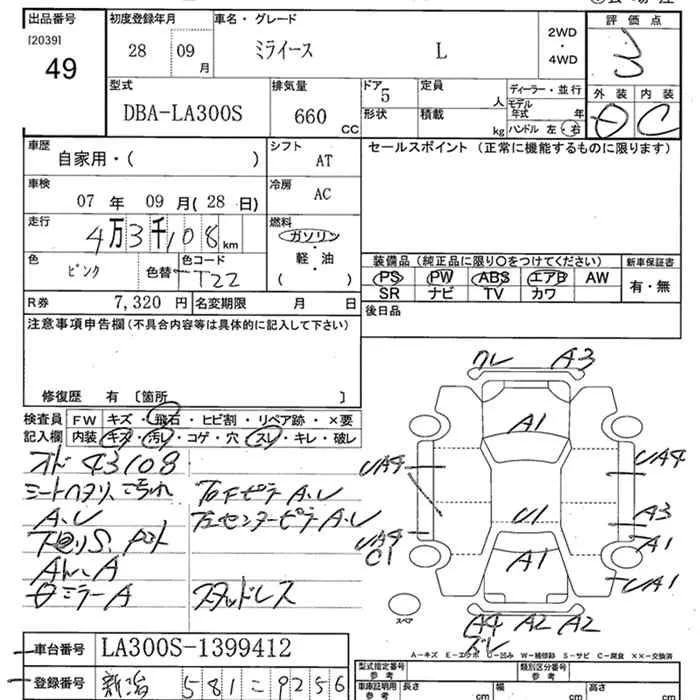 出品番号
[2039]
49
初度登録年月
28 09 月
車名・グレード
ミライース L
2WD
・
4WD
評価点
3
外装 内装
C
型式
DBA-LA300S
排気量
660 CC
ドア 5
形状
定員 人
積載 kg
ディーラー・並行
モデル年式 年
ハンドル 左・右
車歴
自家用・( )
シフト
AT
車検
07 年 09 月(28 日)
冷房
AC
走行
4万3千108 km
燃料
ガソリン
軽・油
( )
色
ピンク
色替
色コード
T22
R券 7,320 円
名変期限 月 日
セールスポイント(正常に機能するものに限ります)
装備品(純正品に限り○をつけてください)
PS PW ABS エアB AW
SR ナビ TV カワ
新車保証書
有・無
後日品
注意事項申告欄(不具合内容等は具体的に記入して下さい)
修復歴 有 〔箇所 〕
検査員記入欄
FW キズ・飛石・ヒビ割・リペア跡・×要
内装 キズ・汚レ・コゲ・穴・スレ・キレ・破レ
オド 43108
A.U
ミラーA
スタッドレス
ワレ A3
A1
UA4 UA4
U1
A3
UA4 A1
C1
A1
UA1
A4 A2 A2
ズレ
スペア
A-キズ E-エクボ U-凹み W-補修跡 S-サビ C-腐食 XX-交換済
車台番号
LA300S-1399412
登録番号
新潟 581 ニ 9256
型式指定番号
参考
類別区分番号
参考
車庫証明用
参考
長さ cm
幅 cm
高さ cm